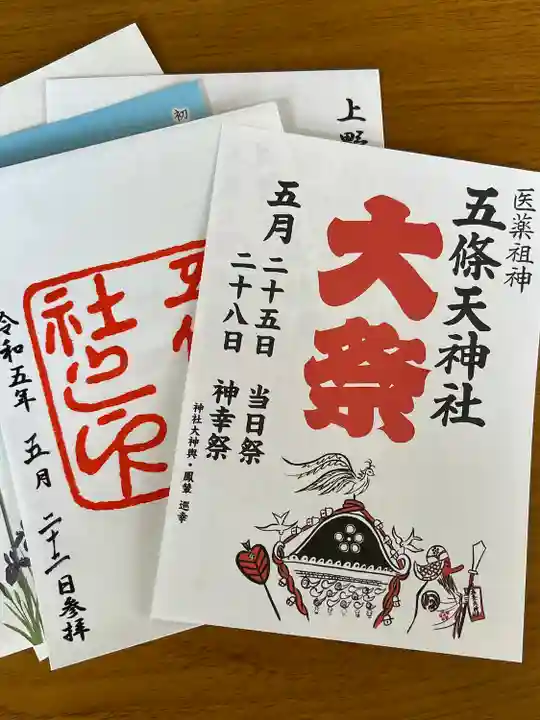 医薬祖神
五條天神社
大祭
五月 二十五日 当日祭
二十八日 神幸祭
神社大神輿・鳳輦 巡幸
上野
初
令和五年 五月 二十一日参拝